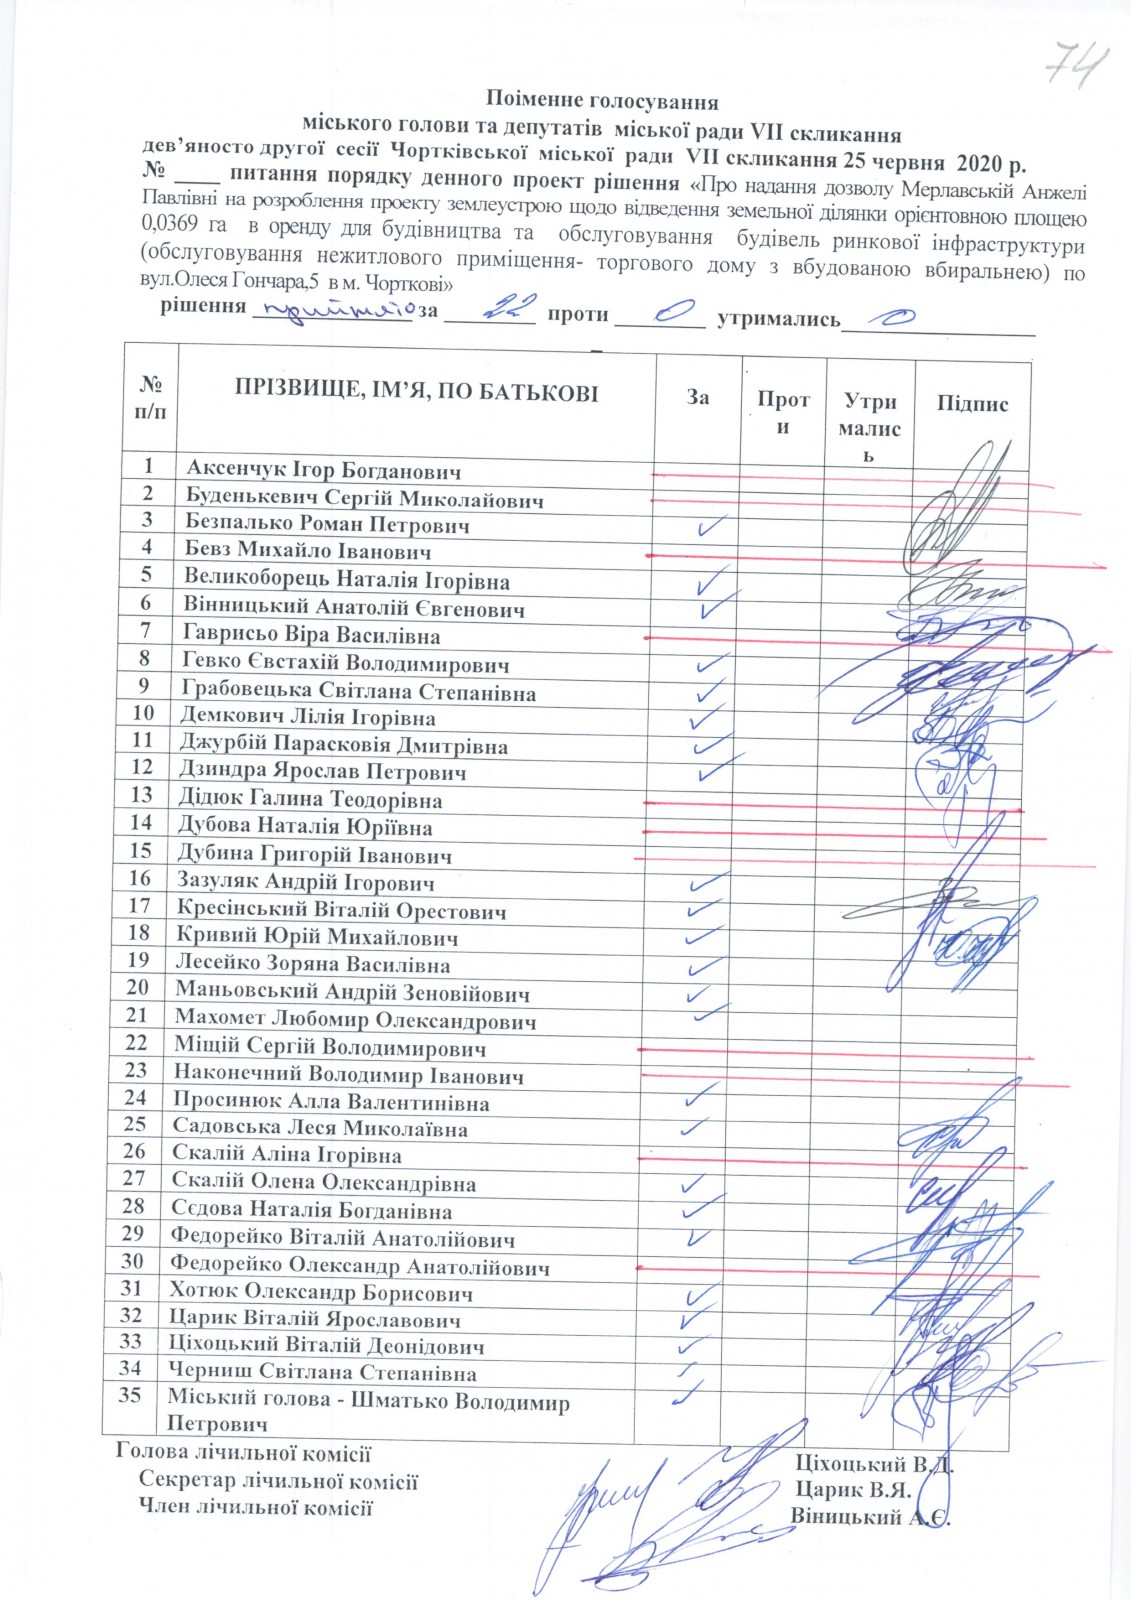 74
Поіменне голосування
міського голови та депутатів міської ради VII скликання
дев’яносто другої сесії Чортківської міської ради VII скликання 25 червня 2020 р.
№ ____ питання порядку денного проект рішення «Про надання дозволу Мерлавській Анжелі
Павлівні на розроблення проекту землеустрою щодо відведення земельної ділянки орієнтовною площею
0,0369 га в оренду для будівництва та обслуговування будівель ринкової інфраструктури
(обслуговування нежитлового приміщення- торгового дому з вбудованою вбиральнею) по
вул.Олеся Гончара,5 в м. Чорткові»
рішення прийнято за 22 проти 0 утримались 0
№ п/п ПРІЗВИЩЕ, ІМ’Я, ПО БАТЬКОВІ За Проти Утримались Підпис
1 Аксенчук Ігор Богданович
2 Буденькевич Сергій Миколайович
3 Безпалько Роман Петрович ✓
4 Бевз Михайло Іванович
5 Великоборець Наталія Ігорівна ✓
6 Вінницький Анатолій Євгенович ✓
7 Гаврисьо Віра Василівна
8 Гевко Євстахій Володимирович ✓
9 Грабовецька Світлана Степанівна ✓
10 Демкович Лілія Ігорівна ✓
11 Джурбій Парасковія Дмитрівна ✓
12 Дзиндра Ярослав Петрович ✓
13 Дідюк Галина Теодорівна
14 Дубова Наталія Юріївна
15 Дубина Григорій Іванович
16 Зазуляк Андрій Ігорович ✓
17 Кресінський Віталій Орестович ✓
18 Кривий Юрій Михайлович ✓
19 Лесейко Зоряна Василівна ✓
20 Маньовський Андрій Зеновійович ✓
21 Махомет Любомир Олександрович ✓
22 Міщій Сергій Володимирович
23 Наконечний Володимир Іванович
24 Просинюк Алла Валентинівна ✓
25 Садовська Леся Миколаївна ✓
26 Скалій Аліна Ігорівна
27 Скалій Олена Олександрівна ✓
28 Сєдова Наталія Богданівна ✓
29 Федорейко Віталій Анатолійович ✓
30 Федорейко Олександр Анатолійович
31 Хотюк Олександр Борисович ✓
32 Царик Віталій Ярославович ✓
33 Ціхоцький Віталій Деонідович ✓
34 Черниш Світлана Степанівна ✓
35 Міський голова - Шматько Володимир
Петрович ✓
Голова лічильної комісії Ціхоцький В.Д.
Секретар лічильної комісії Царик В.Я.
Член лічильної комісії Віницький А.Є.